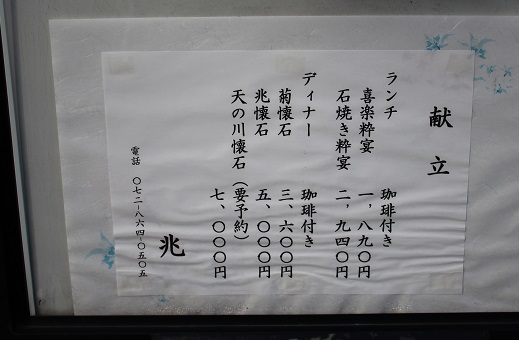 献立
ランチ 珈琲付き
喜楽粋宴 一、八九〇円
石焼き粋宴 二、九四〇円
ディナー 珈琲付き
菊懐石 三、六〇〇円
兆懐石 五、〇〇〇円
天の川懐石(要予約) 七、〇〇〇円
兆
電話 〇七二-八六四-〇五〇五